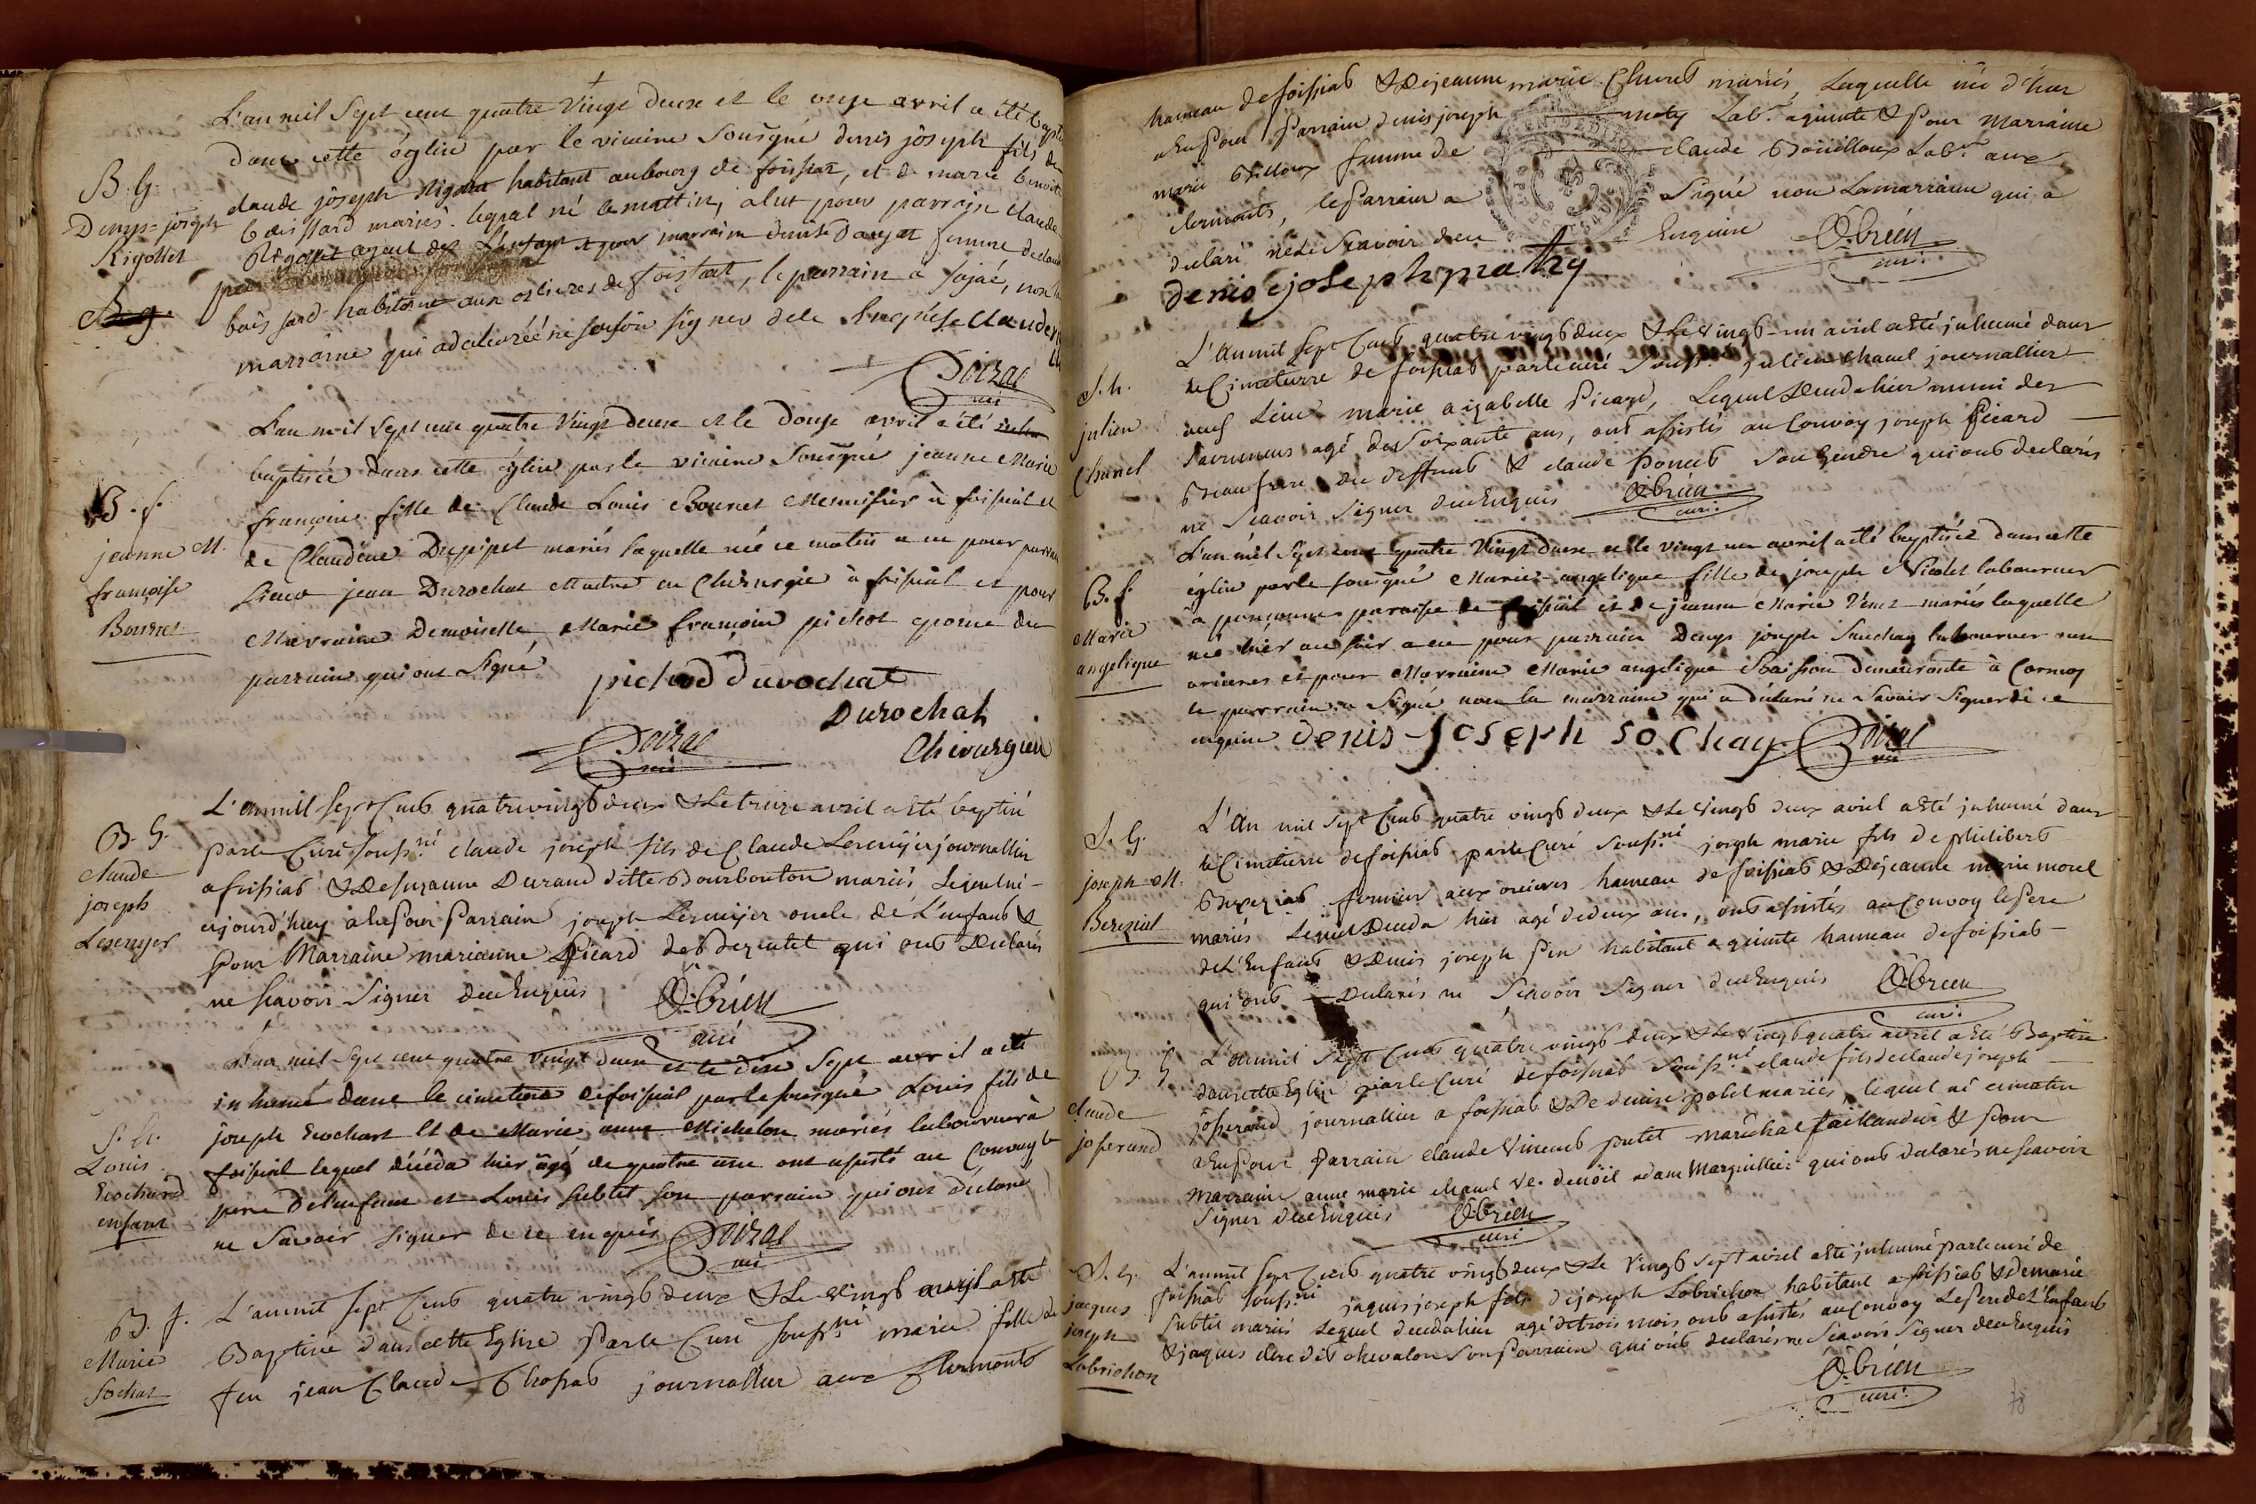 L'an mil sept cent quatre vingt deux et le onze avril a été bapt
dans cette église par le vicaire soussigné denis joseph fils de
B. G.
Denys=joseph
Rigollet
claude joseph Rigollet habitant au bourg de foissiat, et de marie benoite
boissard mariés. lequel né le mattin, a eut pour parrain claude
Rigollet ayeul de l'enfant et pour marraine denise femme de claude
B. g.
boissard habitant aux orlieres de foissiat, le parrain a signé, non la
marraine qui a declarée ne savoir signer de ce enquise claude
Poizac
vic
L'an mil sept cent quatre vingt deux et le douze avril a été
baptisée dans cette église par le vicaire soussigné jeanne Marie
B. f.
jeanne M.
françoise
Bournet
françoise fille de Claude Louis Bournet Menuisier à foissiat et
de Claudine Dupipet mariés laquelle née ce matin a eu pour parrain
Sieur jean Durochat Maitre en Chirurgie à foissiat et pour
Marraine Demoiselle Marie françoise pichod epouse du
parrain qui ont signé
pichod durochat
Durochat
Chirurgien
Poizac
vic
L'an mill sept Cent quatre vingt deux & le treize avril a été baptisé
B. G.
claude
joseph
Lesenyer
par le Curé souss.né claude joseph fils de Claude journallier
a foissiat & de suzanne Durand ditte Bourbouton mariés Lequel né
aujourd'huy a eu pour Parrain joseph oncle de L'enfant &
Pour Marraine marianne Picard de qui ont declarés
ne scavoir signer de ce Enquis
O'brien
curé
L'an mil sept cent quatre vingt deux et le dix sept avril a été
inhumé dans le cimetiere de foissiat par le sousigné Louis fils de
S. G.
Louis
Ecochard
enfant
joseph Ecochard et de Marie anne Michelon mariés laboureur à
foissiat lequel décéda hier âgé de quatre ans ont assisté au Convoy le
pere de l'enfant et Louis Subtil son parrain qui ont declaré
ne Savoir signer de ce enquis
Poizac
vic
B. f.
Marie
Sochat
L'an mil sept Cent quatre vingt deux & Le vingt avril a été
Baptisée dans cette Eglise Par le Curé souss.né marie fille de
feu jean Claude Chossat journallier aux Clermonts
hameau de foissiat & De jeanne marie Churet mariés, Laquelle née d'hier
a Eu Pour Parrain denis joseph maty Lab.r a quinte & Pour Marraine
marie Billoux femme de claude Bouilloux Lab.r aux
clermonts, le Parrain a signé non La marraine qui a
declaré ne le scavoir de ce Enquise
O'brien
curé
denis joseph mathy
L'An mil sept Cent quatre vingt deux & Le vingt-un avril a été inhumé dans
S. h.
julien
Chanel
le Cimetierre de foissiat par le curé souss. julien Chanel journallier
veuf De marie izabelle Picard, Lequel deceda hier muni des
sacremens agé de soixante ans, ont assistés au Convoy joseph Picard
Beaufrere du deffunt & claude Poncet son Gendre qui ont declarés
ne scavoir signer de ce Enquis
O'brien
curé
L'an mil sept cent quatre vingt deux et le vingt un avril a été baptisée dans cette
B. f.
Marie
angelique
église par le sousigné Marie-angelique fille de joseph Nicolet laboureur
à paroisse de foissiat et de jeanne Marie Venet mariés laquelle
née hier au soir a eu pour parrain Denys joseph Sauchay laboureur aux
orieres et pour Marraine Marie angelique Boisson demeurante à Cormoz
le parrain a signé non la marraine qui a declaré ne savoir signer de ce
enquise denis joseph sochay
Poizac
vic
L'An mil sept Cent quatre vingt deux & Le vingt deux avril a été inhumé dans
S. G.
joseph M.
Bereziat
le Cimetierre de foissiat par le Curé souss.né joseph marie fils de Philibert
Bereziat fermier aux orieres hameau de foissiat & De jeanne marie morel
mariés Lequel Deceda hier agé de deux ans, ont assistés au Convoy le Pere
de L'Enfant & Denis joseph Pin habitant a quinte hameau de foissiat
qui ont Declarés ne scavoir signer de ce Enquis
O'brien
curé
B. G.
claude
josserand
L'an mil sept Cent quatre vingt deux & Le vingt quatre avril a été Baptisé
dans cette Eglise par le Curé de foissiat souss.né claude fils de claude joseph
josserand journallier a foissiat & De denise potel mariés, lequel né ce matin
a Eu Pour Parrain claude Vincent putet maréchal taillandier & Pour
marraine anne marie chanel ve. de noël adam Marguillier qui ont declarés ne scavoir
signer de ce Enquis
O'brien
curé
S. G.
jaques
joseph
Labrichon
L'an mil sept Cent quatre vingt deux & Le vingt sept avril a été inhumé par le curé de
foissiat souss.né jaques joseph fils de joseph Labrichon habitant a foissiat & De marie
subtil mariés Lequel deceda hier agé de trois mois ont assistés au Convoy Le Pere de L'Enfant
& jaques dit chevalon son Parrain qui ont declarés ne scavoir signer de ce Enquis
O'brien
curé
78